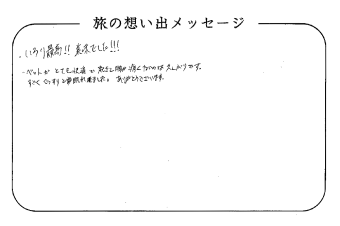 旅の想い出メッセージ
・いろり最高!! 美味でした!!!
・ベットが とても快適で 起きて腰が痛くないのは久しぶりです。
すごく ぐっすりと眠れました。 ありがとうございます。